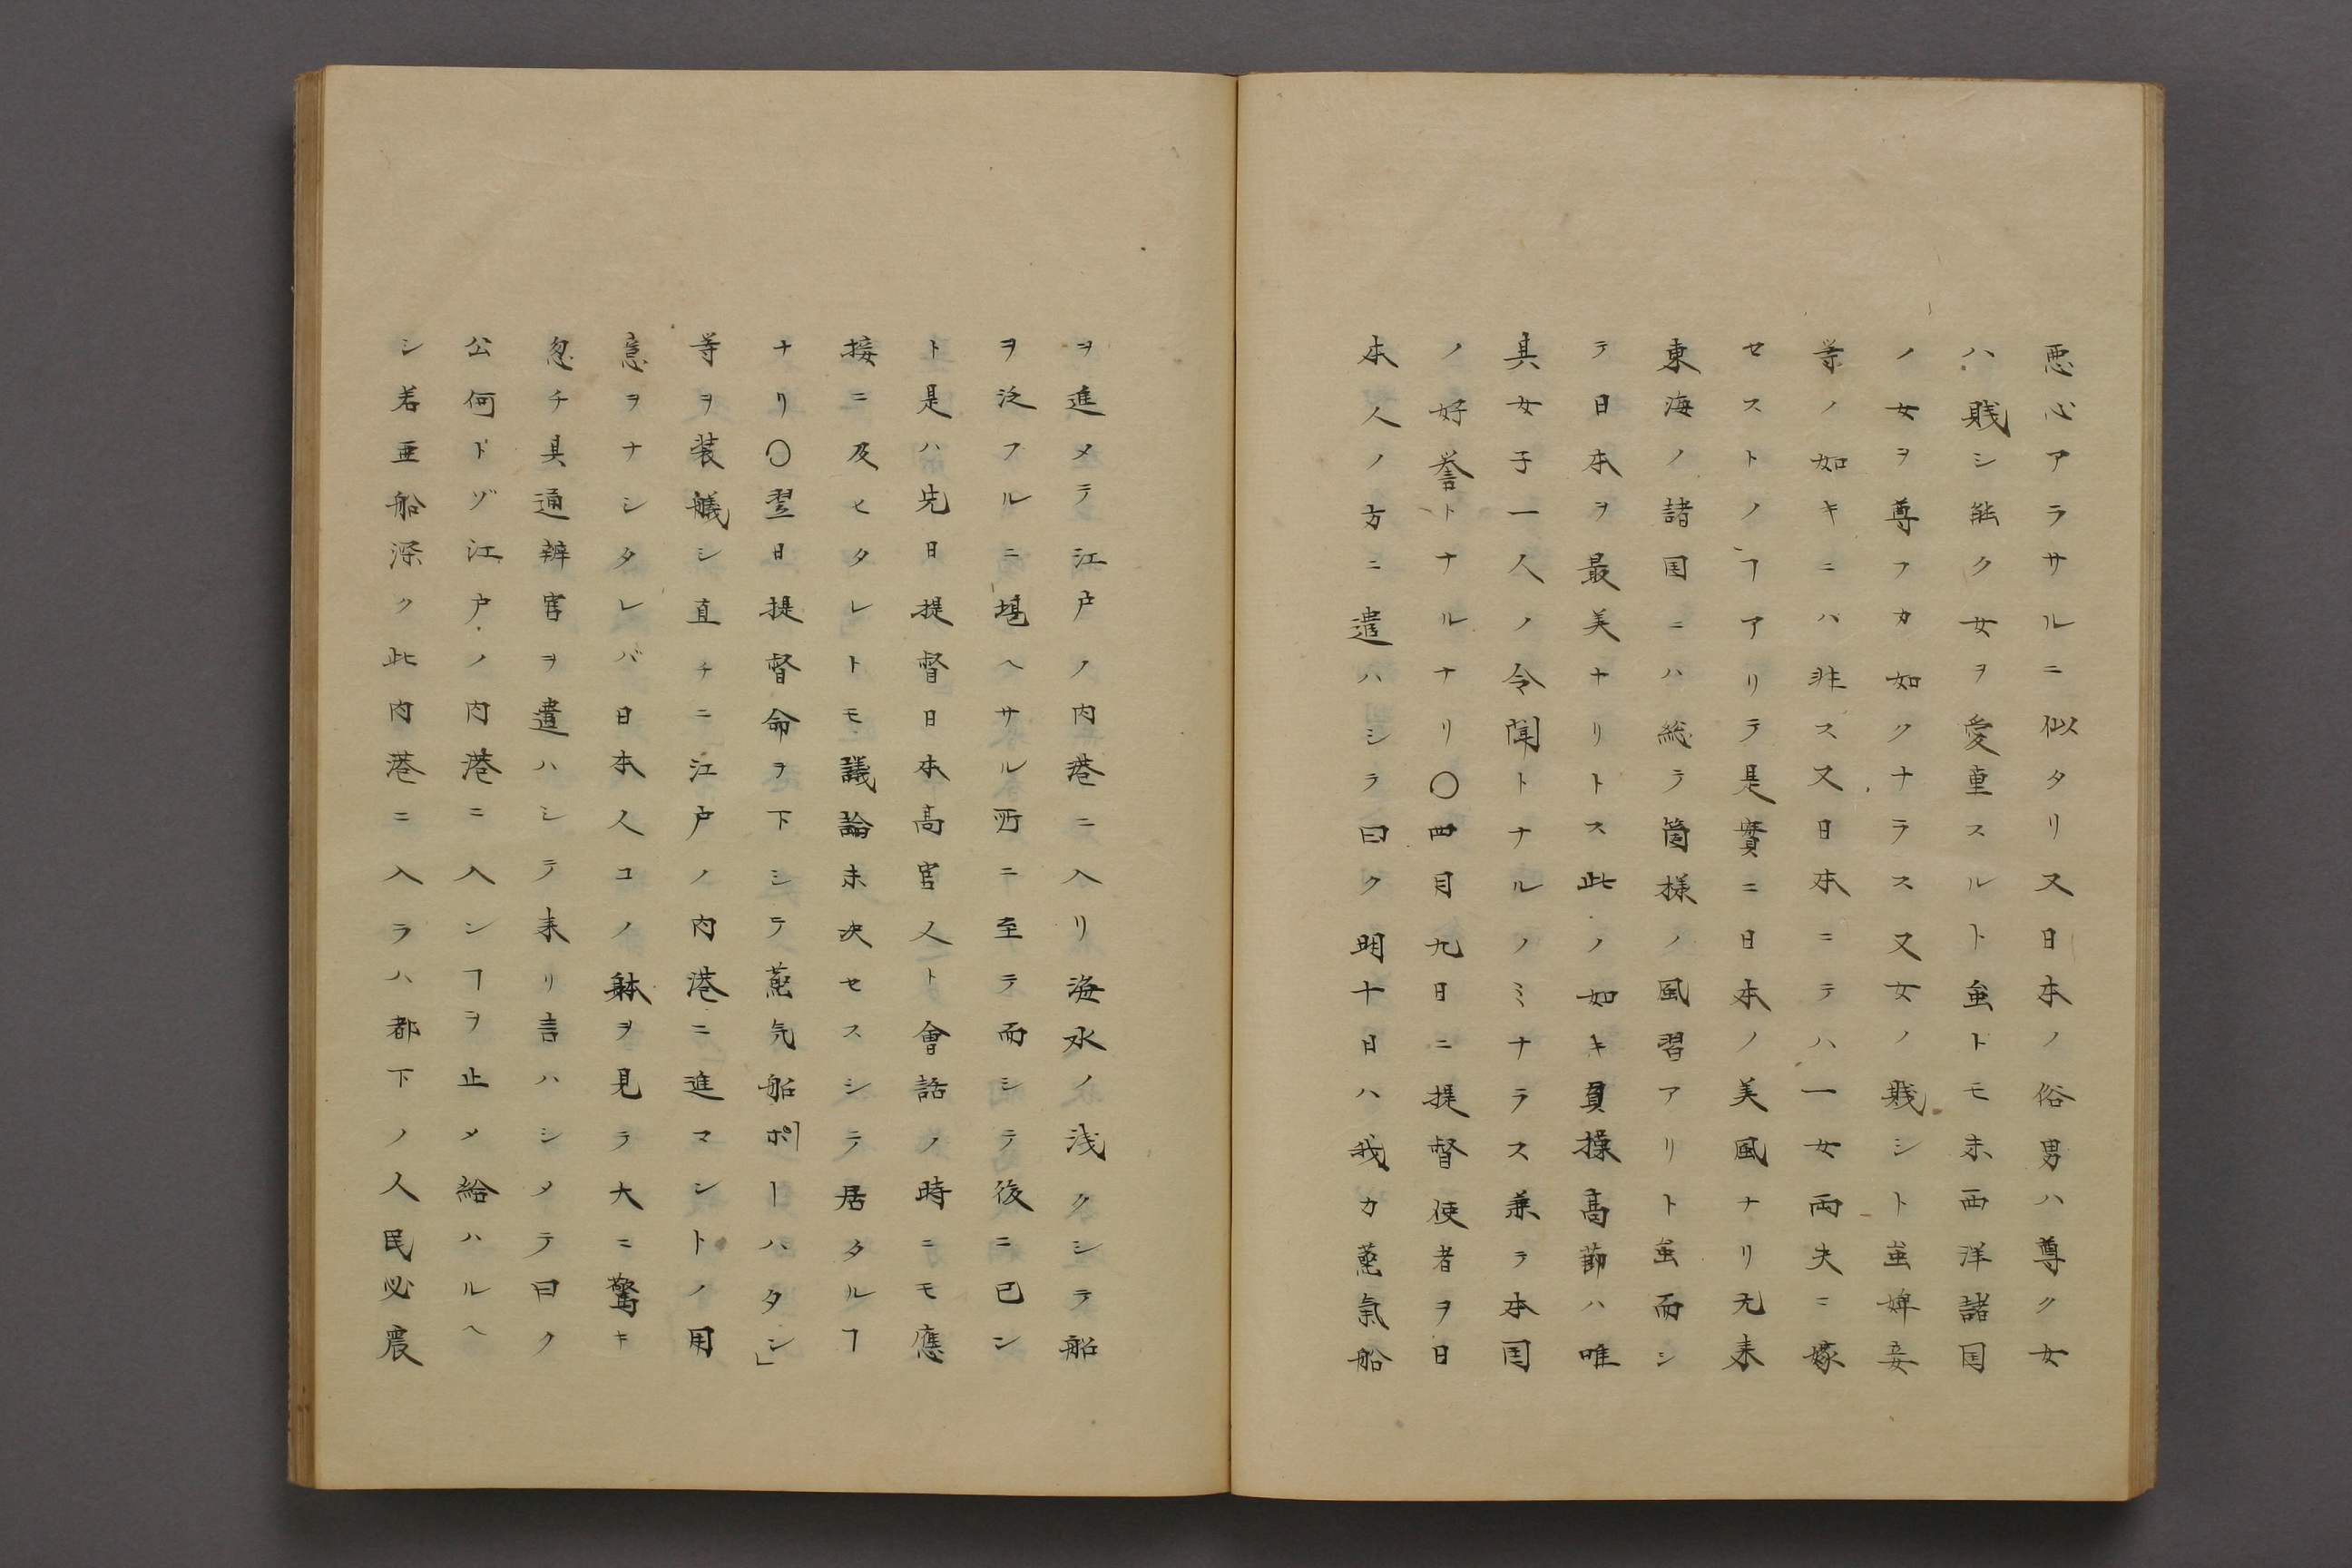 悪心アラサルニ似タリ又日本ノ俗男ハ尊ク女
ハ賎シ能ク女ヲ愛重スルト虽トモ未西洋諸国
ノ女ヲ尊フカ如クナラス又女ノ賎シト虽婢妾
等ノ如キニハ非ス又日本ニテハ一女両夫ニ嫁
セストノヿアリテ是實ニ日本ノ美風ナリ元来
東海ノ諸国ニハ総テ箇様ノ風習アリト虽而シ
テ日本ヲ最美ナリトス此ノ如キ貞操高節ハ唯
其女子一人ノ令聞トナルノミナラス兼テ本国
ノ好誉トナルナリ〇四月九日ニ提督使者ヲ日
本人ノ方ニ遣ハシテ曰ク明十日ハ我カ蒸氣船
ヲ進メテ江戸ノ内港ニ入リ海水ノ浅クシテ船
ヲ泛フルニ堪ヘサル所ニ至テ而シテ後ニ已ン
ト是ハ先日提督日本高官人ト會話ノ時ニモ應
接ニ及ヒタレトモ議論未决セスシテ居タルヿ
ナリ〇翌日提督命ヲ下シテ蒸気船ポーハタン」
等ヲ装艤シ直チニ江戸ノ内港ニ進マントノ用
意ヲナシタレバ日本人コノ躰ヲ見テ大ニ驚キ
忽チ其通辨官ヲ遣ハシテ来リ言ハシメテ曰ク
公何ドゾ江戸ノ内港ニ入ンヿヲ止メ給ハルヘ
シ若亜船深ク此内港ニ入ラハ都下ノ人民必震